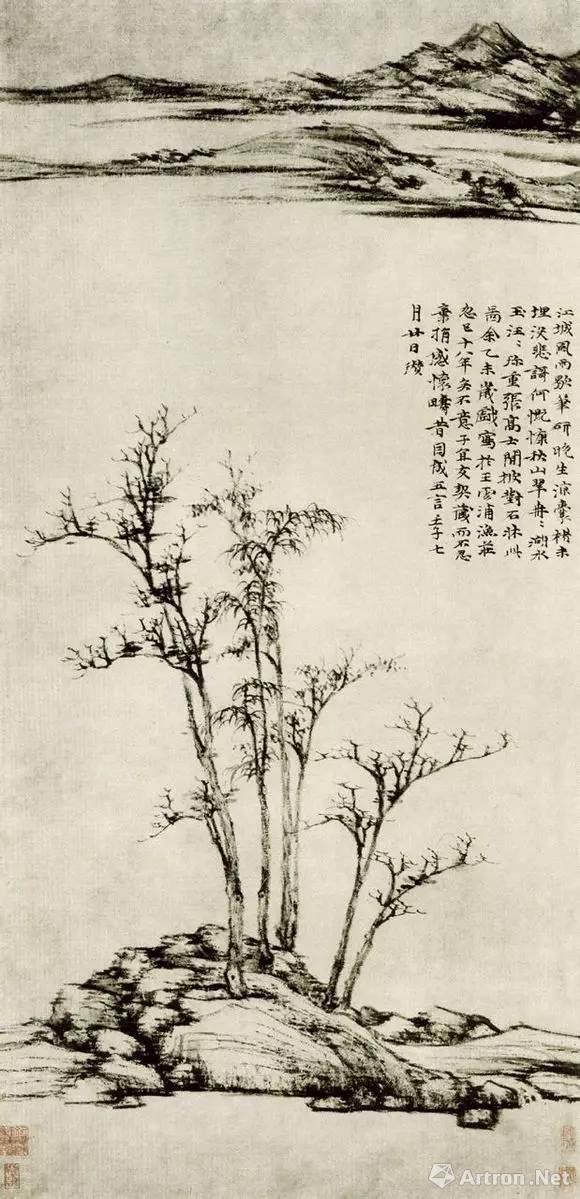 江城風雨歇筆研晚生涼囊楮未
埋没悲謌何慨慷秋山翠冉〻湖水
玉汪〻珎重張高士閒披對石牀此
啚余乙未歲戲寫於王雲浦漁莊
忽已十八年矣不意子宜友契藏而不忍
棄捐感懷疇昔因成五言壬子七
月廿日瓚
Artron.Net